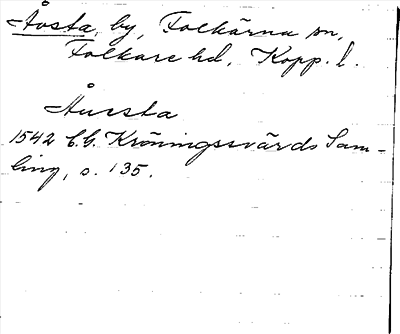 Åvsta, by, Folkärna sn,
Folkare hd, Kopp. l.
Åvesta
1542 C.G. Kröningssvärds Sam-
ling, s. 135.